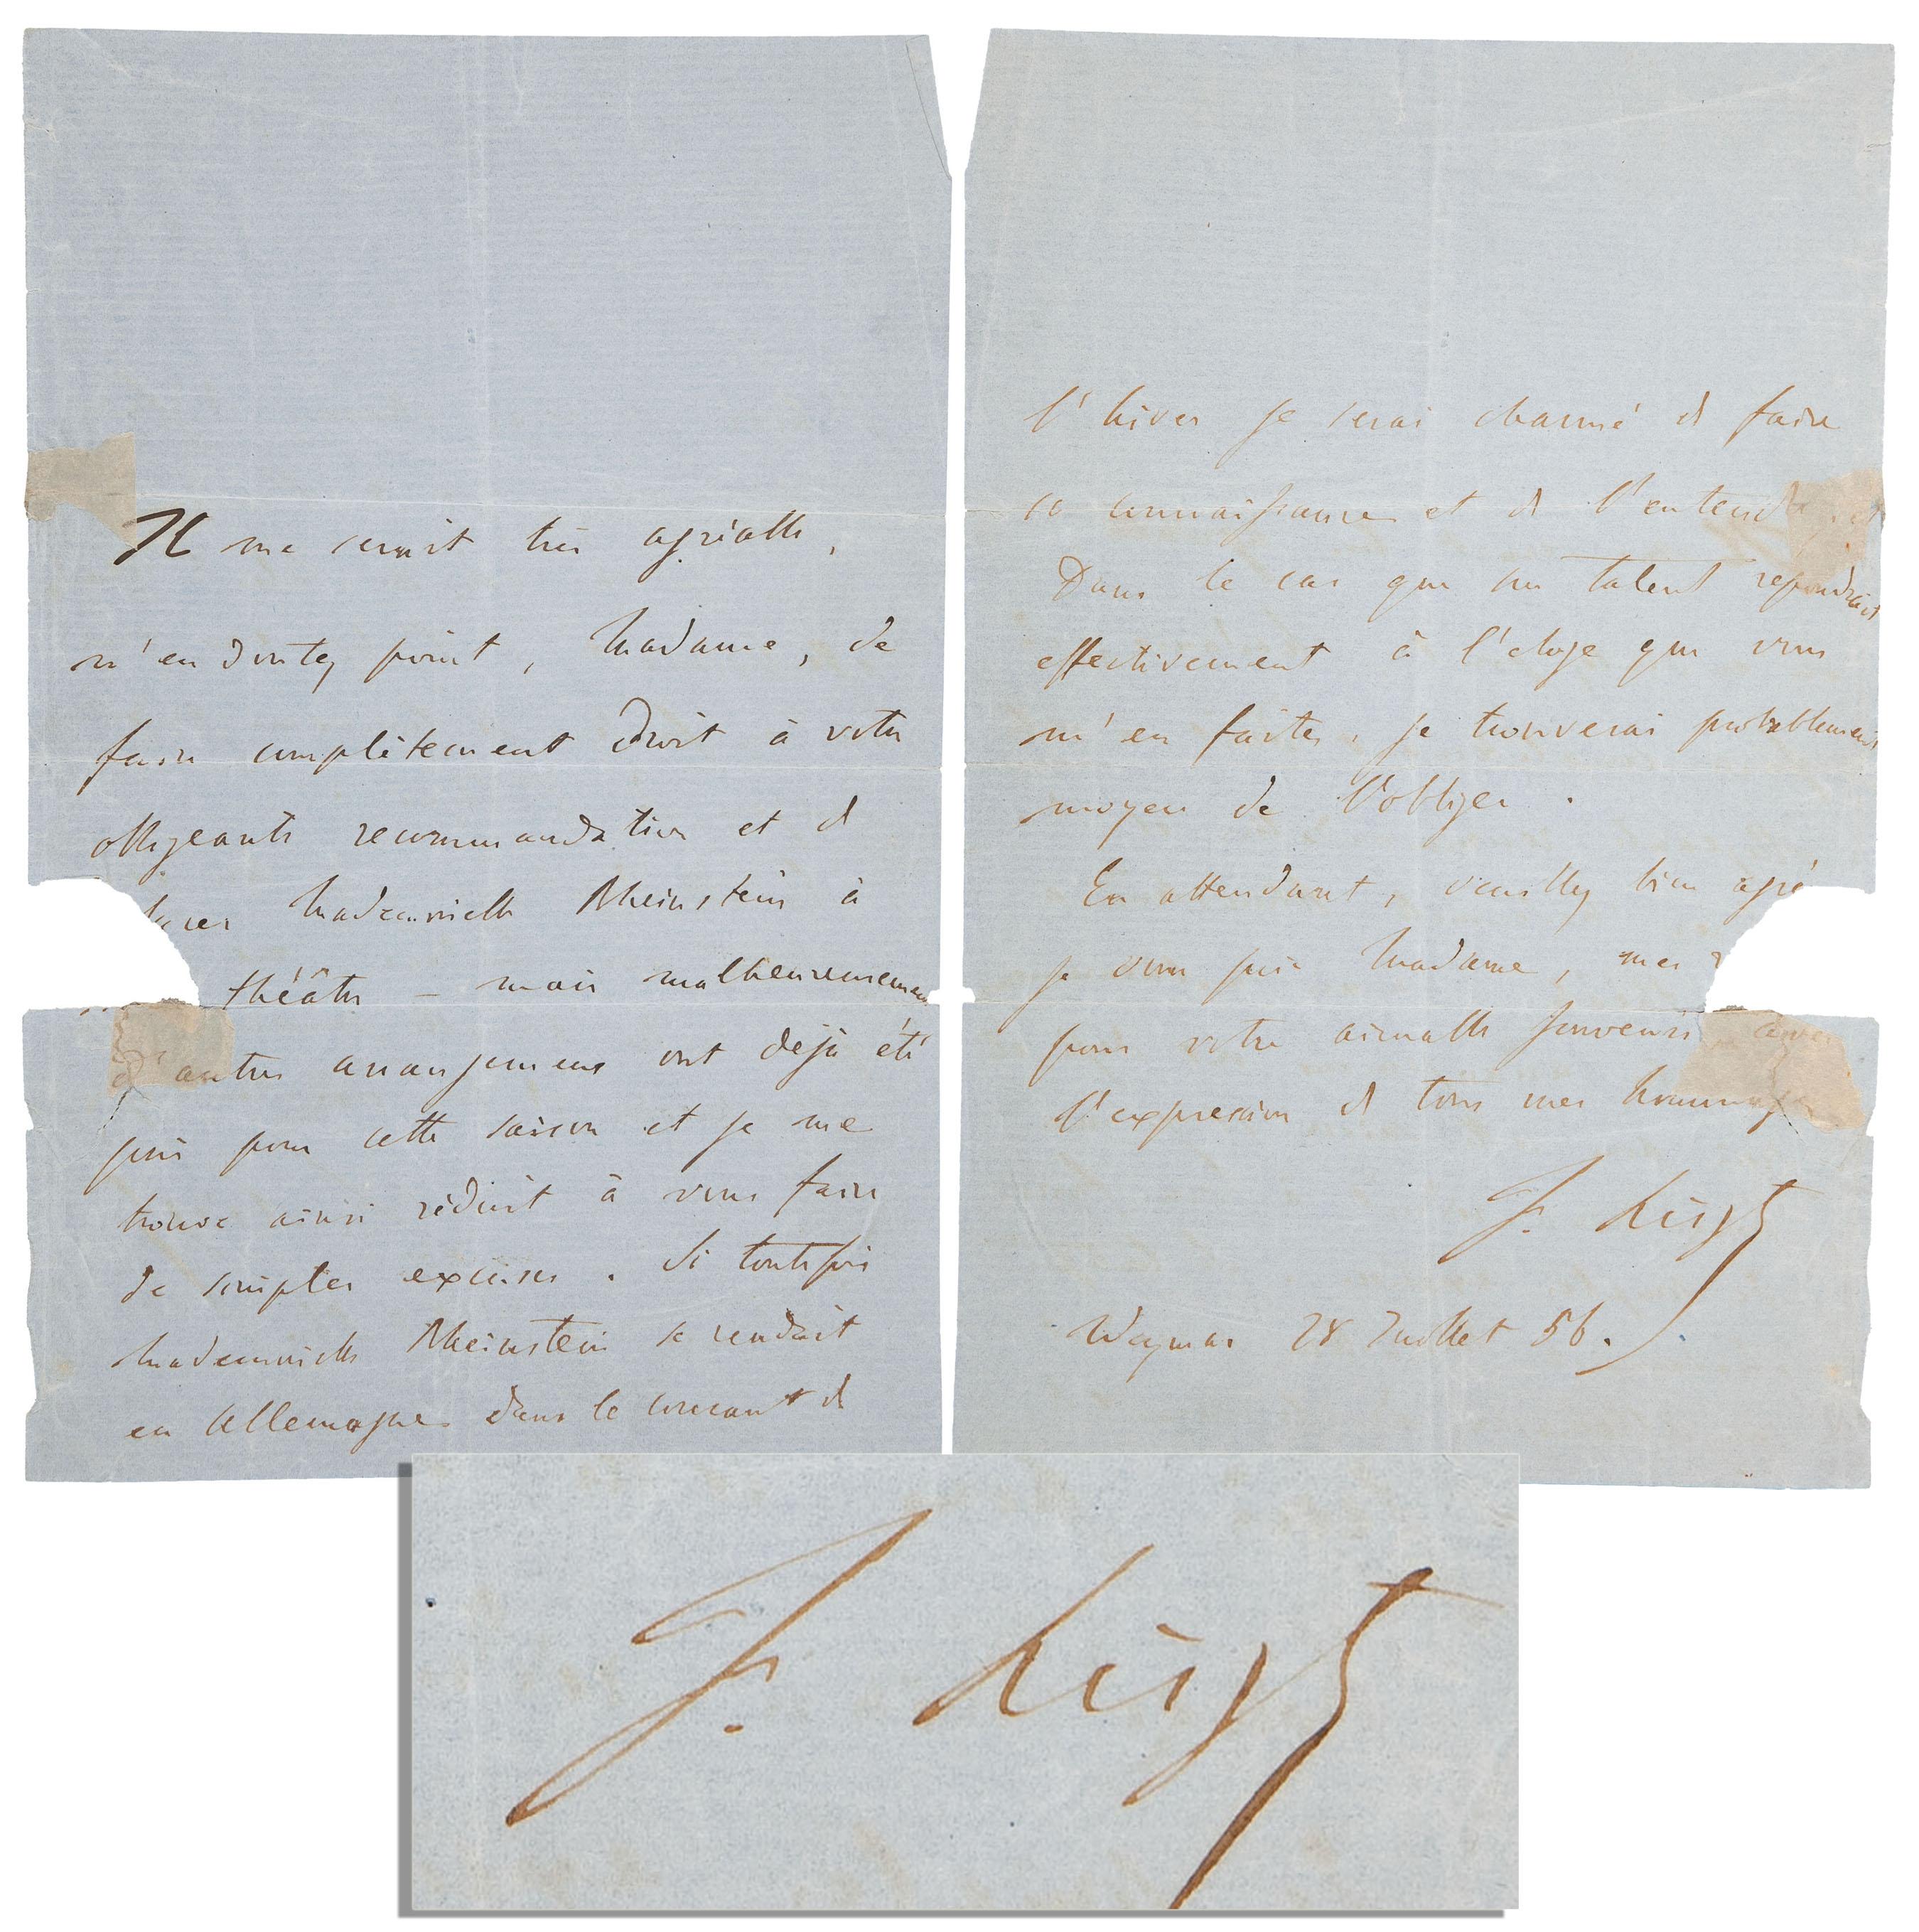 Il me serait très agréable,
n'en doutez point, Madame, de
faire complètement droit à votre
obligeante recommandation et de
Mademoiselle Rheinstein à
théâtre – mais malheureusement
d'autres arrangemens ont déjà été
pris pour cette saison et je me
trouve ainsi réduit à vous faire
de simples excuses. Si toutefois
Mademoiselle Rheinstein se rendait
en Allemagne dans le courant de
l'hiver je serai charmé de faire
sa connaissance et de l'entendre, et
Dans le cas que son talent repondrait
effectivement à l'éloge que vous
m'en faites, je trouverai probablement
moyen de l'obliger.
En attendant, veuillez bien agré
je vous prie Madame, mes
pour votre aimable souvenir avec
l'expression de tous mes hommages
F. Liszt
Weymar 28 Juillet 56.
F. Liszt